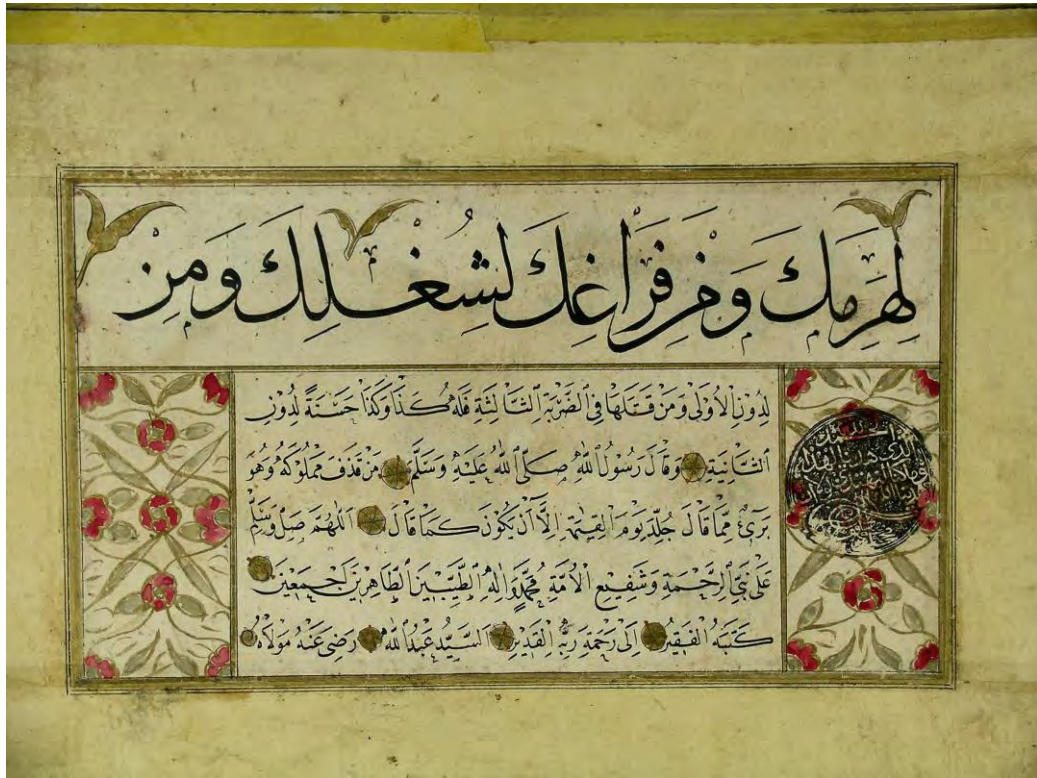 لِهَرَمِكَ وَمِنْ فَرَاغِكَ لِشُغْلِكَ وَمِنْ
لِدُونِ الْأُولَى وَمَنْ قَتَلَهَا فِي الضَّرْبَةِ الثَّالِثَةِ فَلَهُ كَذَا وَكَذَا حَسَنَةً لِدُونِ
الثَّانِيَةِ وَقَالَ رَسُولُ اللّٰهِ صَلَّى اللّٰهُ عَلَيْهِ وَسَلَّمَ مَنْ قَذَفَ مَمْلُوكَهُ وَهُوَ
بَرِيءٌ مِمَّا قَالَ جُلِدَ يَوْمَ الْقِيٰمَةِ اِلَّا اَنْ يَكُونَ كَمَا قَالَ اَللّٰهُمَّ صَلِّ وَسَلِّمْ
عَلَى نَبِيِّ الرَّحْمَةِ وَشَفِيعِ الْاُمَّةِ مُحَمَّدٍ وَاٰلِهِ الطَّيِّبِينَ الطَّاهِرِينَ اَجْمَعِينَ
كَتَبَهُ الْفَقِيرُ اِلَى رَحْمَةِ رَبِّهِ الْقَدِيرِ السَّيِّدُ عَبْدُ اللّٰهِ رَضِيَ عَنْهُ مَوْلَاهُ